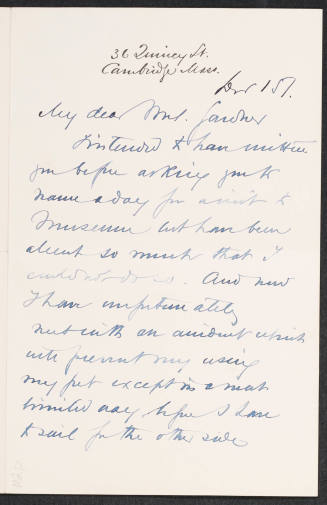 36 Quincy St.
Cambridge Mass.
Dec 15/.
My dear Mrs. Gardner
I intended to have written
you before asking you to
name a day for a visit to
Museum but have been
absent so much that I
could not do so. And now
I have unfortunately
met with an accident which
will prevent my using
my feet except in a most
limited way before I have
to sail for the other side